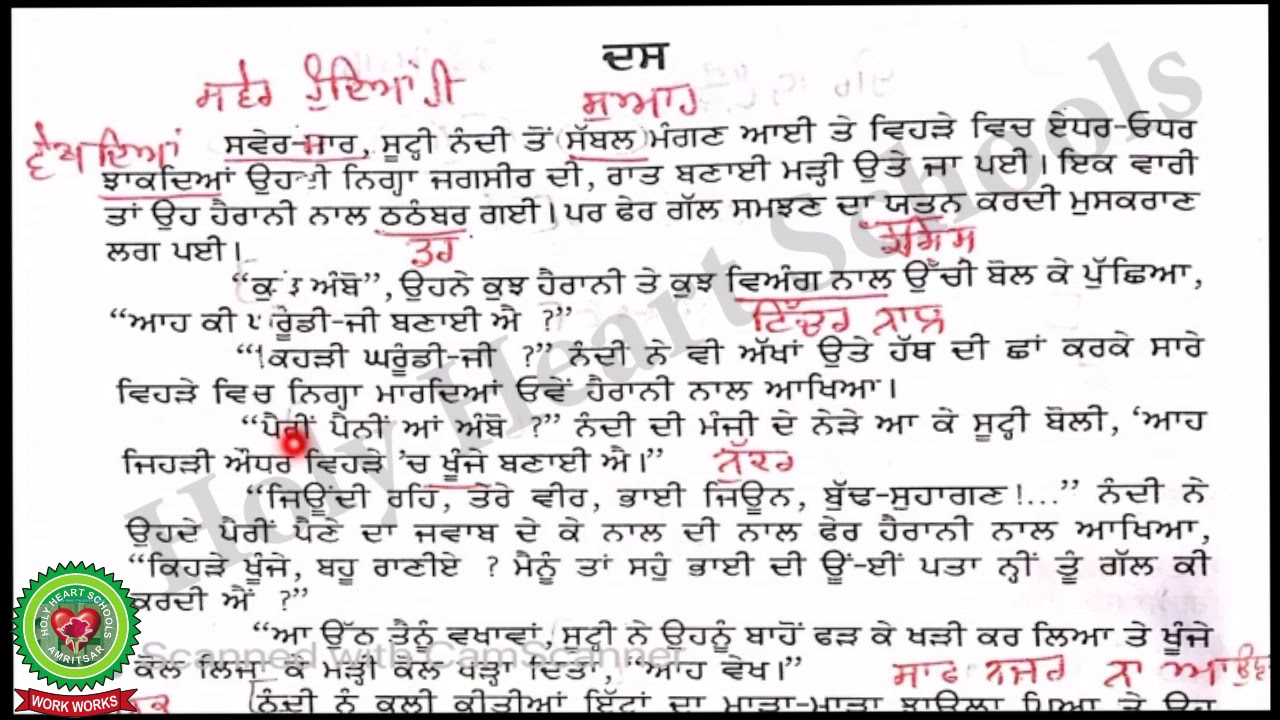 ਦਸ
ਸਵੇਰ ਹੁੰਦਿਆਂ ਹੀ
ਸੁਆਹ
ਵੇਖਦਿਆਂ
ਸਵੇਰ-ਸਾਰ, ਸੂਟ੍ਹੀ ਨੰਦੀ ਤੋਂ (ਸੱਬਲ) ਮੰਗਣ ਆਈ ਤੇ ਵਿਹੜੇ ਵਿਚ ਏਧਰ-ਓਧਰ
ਝਾਕਦਿਆਂ ਉਹਦੀ ਨਿਗ੍ਹਾ ਜਗਸੀਰ ਦੀ, ਰਾਤ ਬਣਾਈ ਮੜ੍ਹੀ ਉਤੇ ਜਾ ਪਈ। ਇਕ ਵਾਰੀ
ਤਾਂ ਉਹ ਹੈਰਾਨੀ ਨਾਲ ਠਠੰਬਰ ਗਈ। ਪਰ ਫੇਰ ਗੱਲ ਸਮਝਣ ਦਾ ਯਤਨ ਕਰਦੀ ਮੁਸਕਰਾਣ
ਲਗ ਪਈ।
ਤਰ
ਕੋਸ਼ਿਸ਼
“ਕੁੜੇ ਅੰਬੋ”, ਉਹਨੇ ਕੁਝ ਹੈਰਾਨੀ ਤੇ ਕੁਝ ਵਿਅੰਗ ਨਾਲ ਉੱਚੀ ਬੋਲ ਕੇ ਪੁੱਛਿਆ,
“ਆਹ ਕੀ ਘਰੂੰਡੀ-ਜੀ ਬਣਾਈ ਐ ?”
ਟਿੱਚਰ ਨਾਲ
“ਕਿਹੜੀ ਘਰੂੰਡੀ-ਜੀ ?” ਨੰਦੀ ਨੇ ਵੀ ਅੱਖਾਂ ਉਤੇ ਹੱਥ ਦੀ ਛਾਂ ਕਰਕੇ ਸਾਰੇ
ਵਿਹੜੇ ਵਿਚ ਨਿਗ੍ਹਾ ਮਾਰਦਿਆਂ ਓਵੇਂ ਹੈਰਾਨੀ ਨਾਲ ਆਖਿਆ।
“ਪੈਰੀਂ ਪੈਨੀਂ ਆਂ ਅੰਬੋ ?” ਨੰਦੀ ਦੀ ਮੰਜੀ ਦੇ ਨੇੜੇ ਆ ਕੇ ਸੂਟ੍ਹੀ ਬੋਲੀ, ‘ਆਹ
ਜਿਹੜੀ ਔਧਰ ਵਿਹੜੇ ’ਚ ਖੂੰਜੇ ਬਣਾਈ ਐ।”
ਨੁੱਕਰ
“ਜਿਊਂਦੀ ਰਹਿ, ਤੇਰੇ ਵੀਰ, ਭਾਈ ਜਿਊਨ, ਬੁੱਢ-ਸੁਹਾਗਣ !...” ਨੰਦੀ ਨੇ
ਉਹਦੇ ਪੈਰੀਂ ਪੈਣੇ ਦਾ ਜਵਾਬ ਦੇ ਕੇ ਨਾਲ ਦੀ ਨਾਲ ਫੇਰ ਹੈਰਾਨੀ ਨਾਲ ਆਖਿਆ,
“ਕਿਹੜੇ ਖੂੰਜੇ, ਬਹੂ ਰਾਣੀਏ ? ਮੈਨੂੰ ਤਾਂ ਸਹੁੰ ਭਾਈ ਦੀ ਊਂ-ਈਂ ਪਤਾ ਨ੍ਹੀਂ ਤੂੰ ਗੱਲ ਕੀ
ਕਰਦੀ ਐਂ ?”
“ਆ ਉੱਠ ਤੈਨੂੰ ਵਖਾਵਾਂ, ਸੂਟ੍ਹੀ ਨੇ ਉਹਨੂੰ ਬਾਹੋਂ ਫੜ ਕੇ ਖੜੀ ਕਰ ਲਿਆ ਤੇ ਖੂੰਜੇ
ਕੋਲ ਲਿਜਾ ਕੇ ਮੜ੍ਹੀ ਕੋਲ ਖੜ੍ਹਾ ਦਿਤਾ, “ਆਹ ਵੇਖ।”
ਸਾਫ ਨਜਰ ਨਾ
ਨੰਦੀ ਨੂੰ ਕਲੀ ਕੀਤੀਆਂ ਇੱਟਾਂ ਦਾ ਮਾੜਾ-ਮਾੜਾ ਝਾਉਲਾ ਪਿਆ ਤੇ ਉਹ
Holy Heart Schools
Scanned with CamScanner
HOLY HEART SCHOOLS
AMRITSAR
WORK WORKS